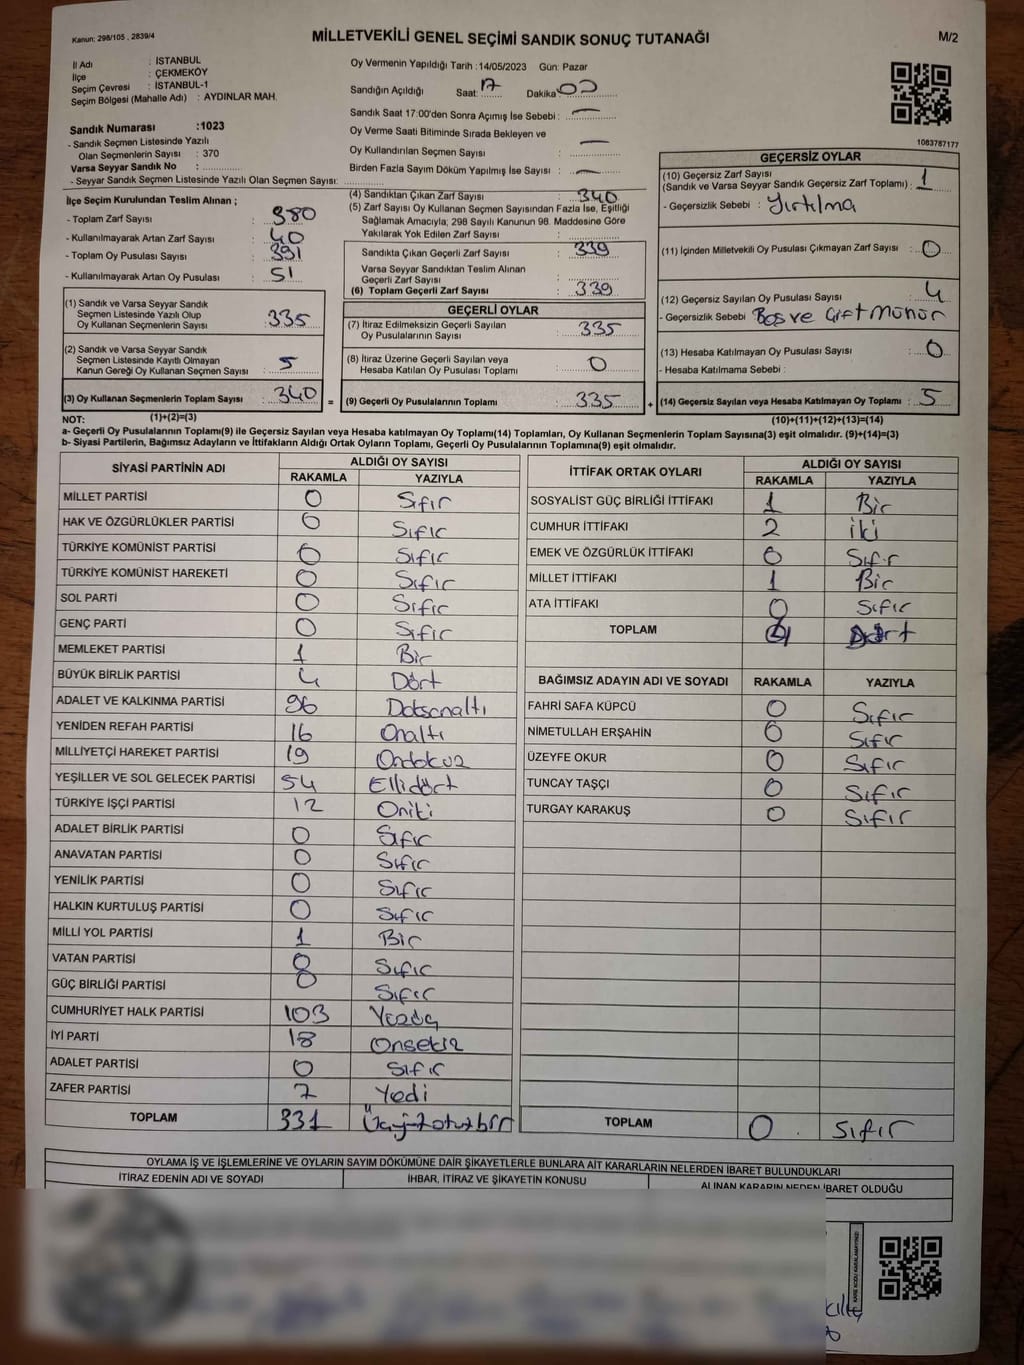 Kanun: 298/105 , 2839/4
MİLLETVEKİLİ GENEL SEÇİMİ SANDIK SONUÇ TUTANAĞI
M/2
İl Adı : İSTANBUL
İlçe : ÇEKMEKÖY
Seçim Çevresi : İSTANBUL-1
Seçim Bölgesi (Mahalle Adı) : AYDINLAR MAH.
Oy Vermenin Yapıldığı Tarih :14/05/2023 Gün: Pazar
Sandığın Açıldığı Saat: 17 Dakika 00
Sandık Saat 17:00'den Sonra Açımış İse Sebebi : —
Oy Verme Saati Bitiminde Sırada Bekleyen ve
Oy Kullandırılan Seçmen Sayısı : —
Birden Fazla Sayım Döküm Yapılmış İse Sayısı : —
Sandık Numarası :1023
- Sandık Seçmen Listesinde Yazılı
Olan Seçmenlerin Sayısı : 370
Varsa Seyyar Sandık No :
- Seyyar Sandık Seçmen Listesinde Yazılı Olan Seçmen Sayısı:
1083787177
İlçe Seçim Kurulundan Teslim Alınan ;
- Toplam Zarf Sayısı : 380
- Kullanılmayarak Artan Zarf Sayısı : 40
- Toplam Oy Pusulası Sayısı : 391
- Kullanılmayarak Artan Oy Pusulası : 51
(1) Sandık ve Varsa Seyyar Sandık
Seçmen Listesinde Yazılı Olup
Oy Kullanan Seçmenlerin Sayısı : 335
(2) Sandık ve Varsa Seyyar Sandık
Seçmen Listesinde Kayıtlı Olmayan
Kanun Gereği Oy Kullanan Seçmen Sayısı : 5
(3) Oy Kullanan Seçmenlerin Toplam Sayısı : 340 =
(4) Sandıktan Çıkan Zarf Sayısı : 340
(5) Zarf Sayısı Oy Kullanan Seçmen Sayısından Fazla İse, Eşitliği
Sağlamak Amacıyla; 298 Sayılı Kanunun 98. Maddesine Göre
Yakılarak Yok Edilen Zarf Sayısı :
Sandıkta Çıkan Geçerli Zarf Sayısı : 339
Varsa Seyyar Sandıktan Teslim Alınan
Geçerli Zarf Sayısı :
(6) Toplam Geçerli Zarf Sayısı : 339
GEÇERLİ OYLAR
(7) İtiraz Edilmeksizin Geçerli Sayılan
Oy Pusulalarının Sayısı : 335
(8) İtiraz Üzerine Geçerli Sayılan veya
Hesaba Katılan Oy Pusulası Toplamı : 0
(9) Geçerli Oy Pusulalarının Toplamı : 335 +
GEÇERSİZ OYLAR
(10) Geçersiz Zarf Sayısı
(Sandık ve Varsa Seyyar Sandık Geçersiz Zarf Toplamı) : 1
- Geçersizlik Sebebi : Yırtılma
(11) İçinden Milletvekili Oy Pusulası Çıkmayan Zarf Sayısı : 0
(12) Geçersiz Sayılan Oy Pusulası Sayısı : 4
- Geçersizlik Sebebi Boş ve Çift Mühür
(13) Hesaba Katılmayan Oy Pusulası Sayısı : 0
- Hesaba Katılmama Sebebi :
(14) Geçersiz Sayılan veya Hesaba Katılmayan Oy Toplamı : 5
NOT: (1)+(2)=(3)
(10)+(11)+(12)+(13)=(14)
a- Geçerli Oy Pusulasının Toplamı(9) ile Geçersiz Sayılan veya Hesaba katılmayan Oy Toplamı(14) Toplamları, Oy Kullanan Seçmenlerin Toplam Sayısına(3) eşit olmalıdır. (9)+(14)=(3)
b- Siyasi Partilerin, Bağımsız Adayların ve İttifakların Aldığı Ortak Oyların Toplamı, Geçerli Oy Pusulalarının Toplamına(9) eşit olmalıdır.
SİYASİ PARTİNİN ADI ALDIĞI OY SAYISI
RAKAMLA YAZIYLA
MİLLET PARTİSİ 0 Sıfır
HAK VE ÖZGÜRLÜKLER PARTİSİ 0 Sıfır
TÜRKİYE KOMÜNİST PARTİSİ 0 Sıfır
TÜRKİYE KOMÜNİST HAREKETİ 0 Sıfır
SOL PARTİ 0 Sıfır
GENÇ PARTİ 0 Sıfır
MEMLEKET PARTİSİ 1 Bir
BÜYÜK BİRLİK PARTİSİ 4 Dört
ADALET VE KALKINMA PARTİSİ 96 Doksanaltı
YENİDEN REFAH PARTİSİ 16 Onaltı
MİLLİYETÇİ HAREKET PARTİSİ 19 Ondokuz
YEŞİLLER VE SOL GELECEK PARTİSİ 54 Ellidört
TÜRKİYE İŞÇİ PARTİSİ 12 Oniki
ADALET BİRLİK PARTİSİ 0 Sıfır
ANAVATAN PARTİSİ 0 Sıfır
YENİLİK PARTİSİ 0 Sıfır
HALKIN KURTULUŞ PARTİSİ 0 Sıfır
MİLLİ YOL PARTİSİ 1 Bir
VATAN PARTİSİ 0 Sıfır
GÜÇ BİRLİĞİ PARTİSİ 0 Sıfır
CUMHURİYET HALK PARTİSİ 103 Yüzüç
İYİ PARTİ 18 Onsekiz
ADALET PARTİSİ 0 Sıfır
ZAFER PARTİSİ 7 Yedi
TOPLAM 331 Üçyüzotuzbir
İTTİFAK ORTAK OYLARI ALDIĞI OY SAYISI
RAKAMLA YAZIYLA
SOSYALİST GÜÇ BİRLİĞİ İTTİFAKI 1 Bir
CUMHUR İTTİFAKI 2 iki
EMEK VE ÖZGÜRLÜK İTTİFAKI 0 Sıfır
MİLLET İTTİFAKI 1 Bir
ATA İTTİFAKI 0 Sıfır
TOPLAM 4 Dört
BAĞIMSIZ ADAYIN ADI VE SOYADI RAKAMLA YAZIYLA
FAHRİ SAFA KÜPCÜ 0 Sıfır
NİMETULLAH ERŞAHİN 0 Sıfır
ÜZEYFE OKUR 0 Sıfır
TUNCAY TAŞÇI 0 Sıfır
TURGAY KARAKUŞ 0 Sıfır
TOPLAM 0 Sıfır
OYLAMA İŞ VE İŞLEMLERİNE VE OYLARIN SAYIM DÖKÜMÜNE DAİR ŞİKAYETLERLE BUNLARA AİT KARARLARIN NELERDEN İBARET BULUNDUKLARI
İTİRAZ EDENİN ADI VE SOYADI İHBAR, İTİRAZ VE ŞİKAYETİN KONUSU ALINAN KARARIN NEDEN İBARET OLDUĞU
KARE KODU KARALAMAYINIZ!